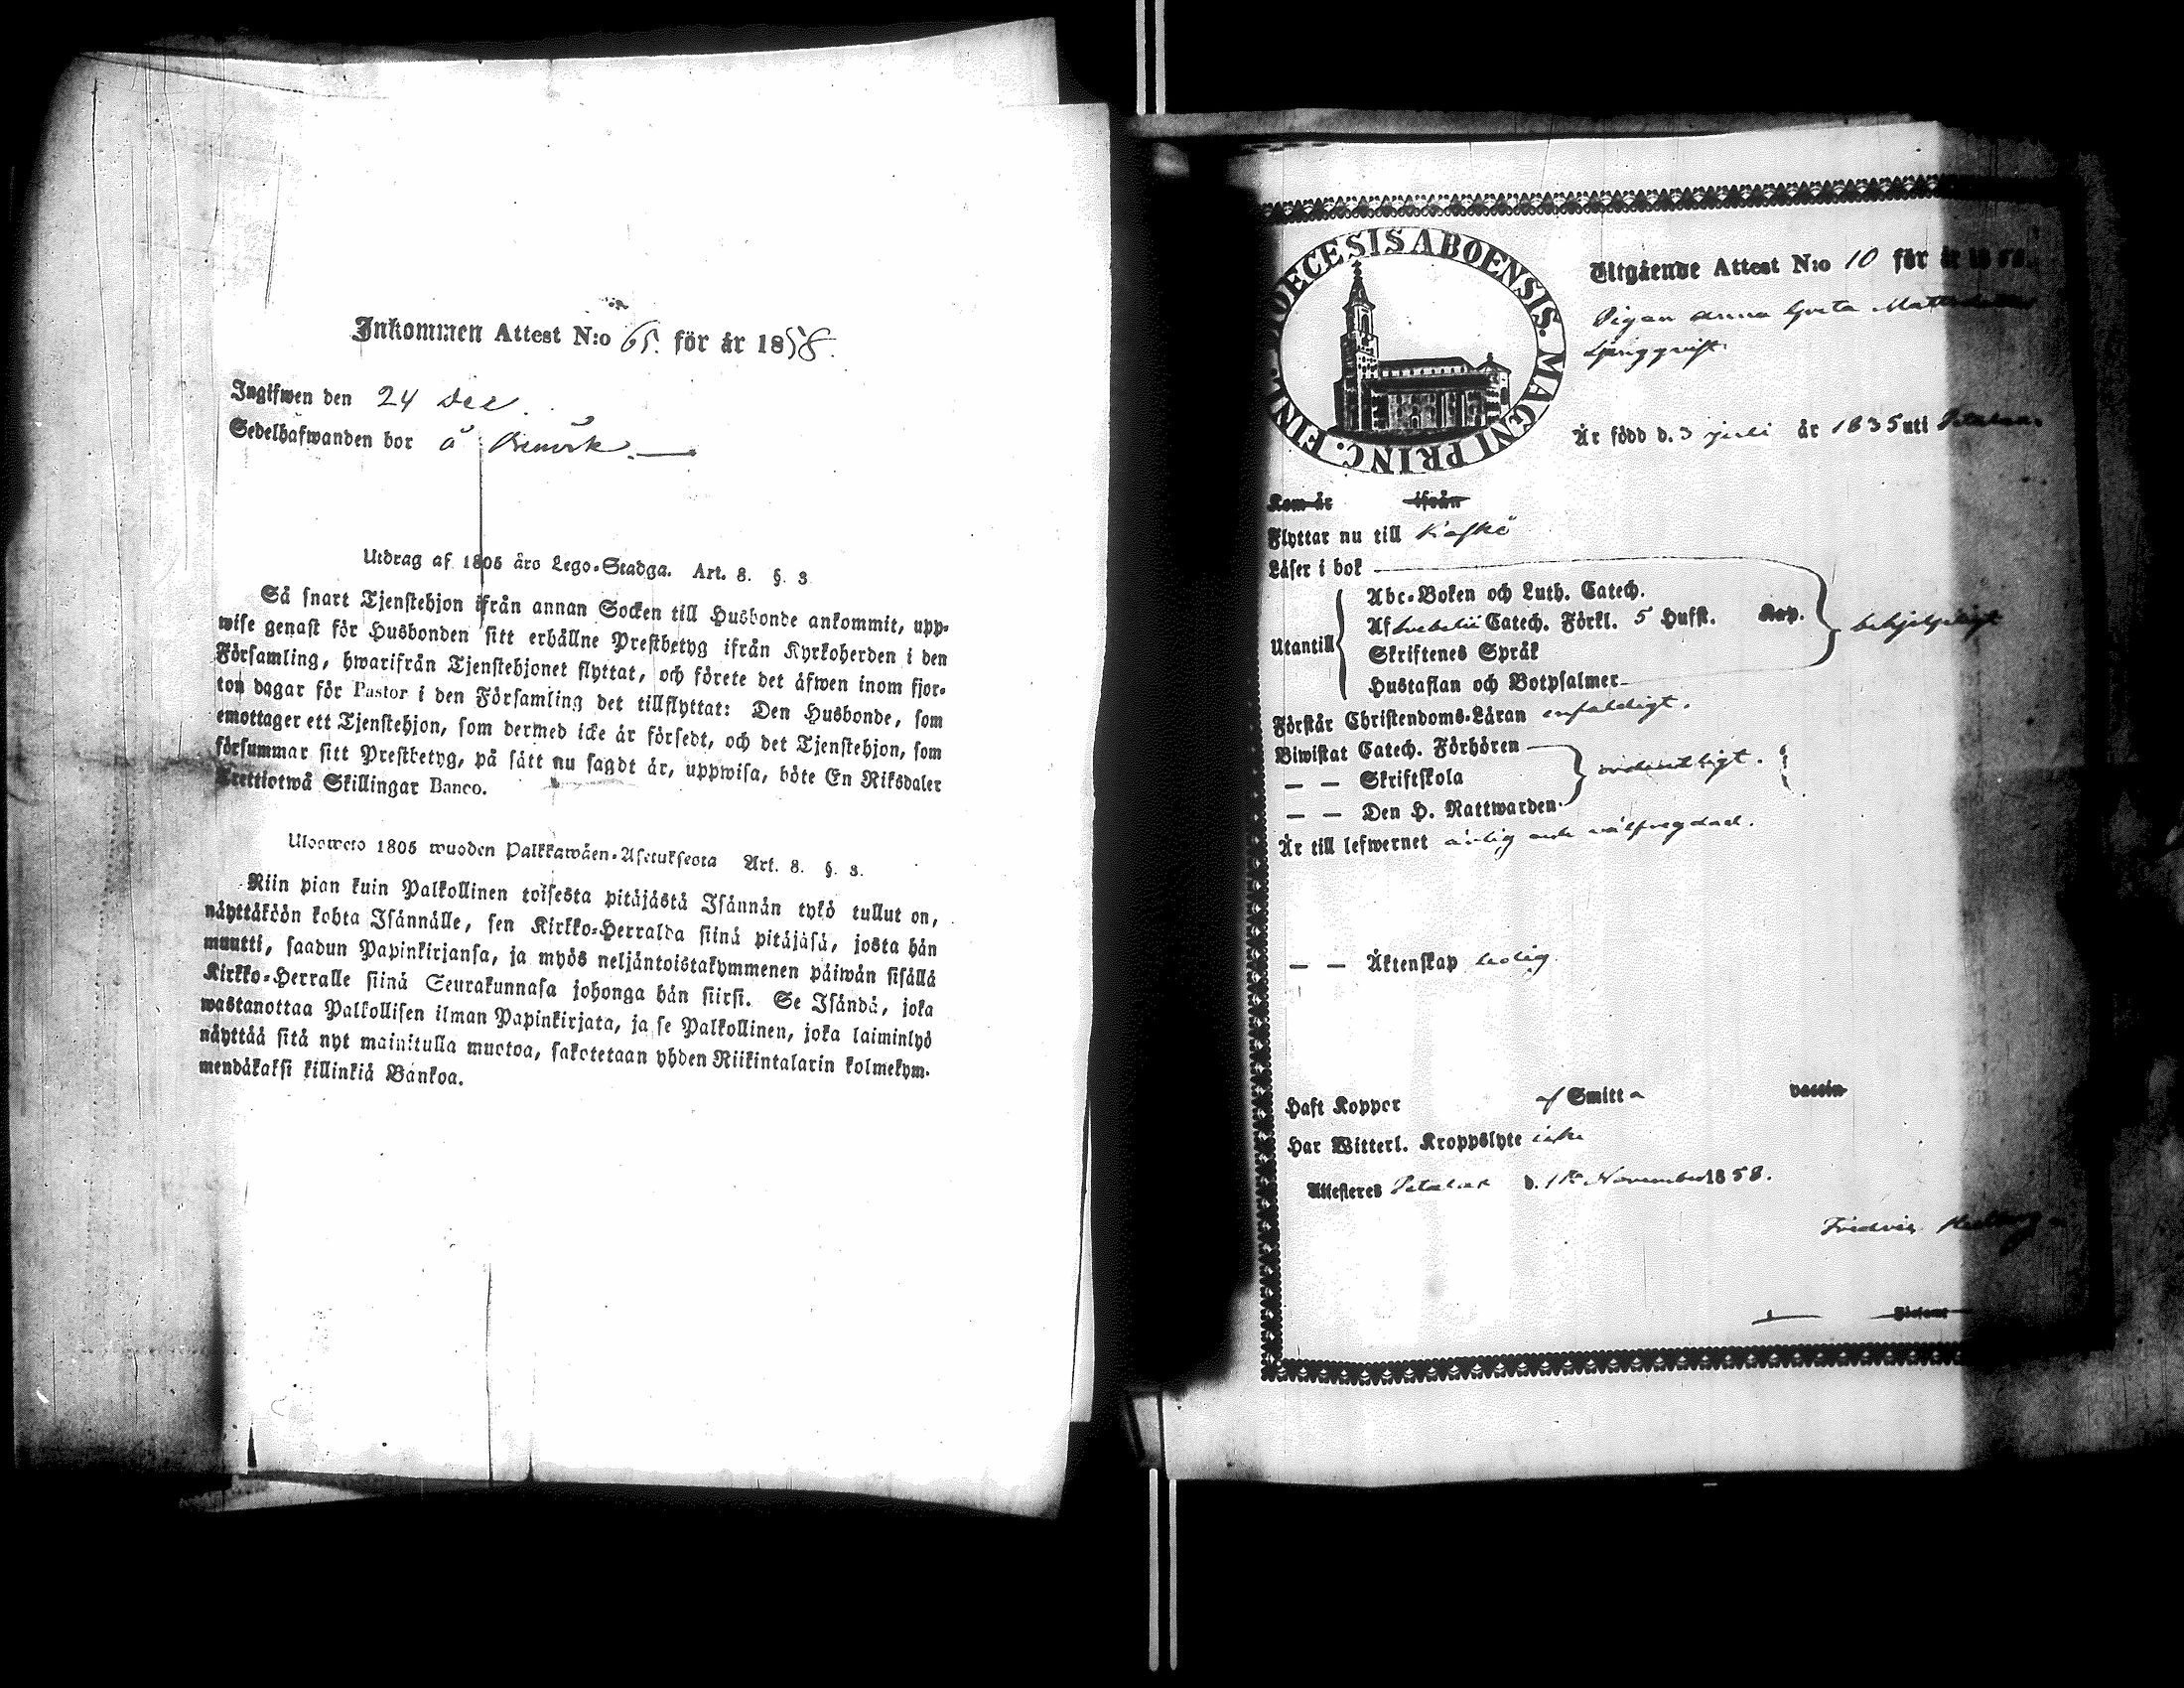 Inkommen Attest N:o 65. för år 1858.
Ingifwen den 24 Dec.
Sedelhafwanden bor å
Utdrag af 1805 års Lego-Stadga. Art. 8. §. 3
Så snart Tjenstehjon ifrån annan Socken till Husbonde ankommit, upp-
wise genast för Husbonden sitt erhållne Prestbetyg ifrån Kyrkoherden i den
Församling, hwarifrån Tjenstehjonet flyttat, och förete det äfwen inom fjor-
ton dagar för Pastor i den Församling det tillflyttat: Den Husbonde, som
emottager ett Tjenstehjon, som dermed icke är försedt, och det Tjenstehjon, som
försummar sitt Prestbetyg, på sätt nu sagdt är, uppwisa, böte En Riksdaler
Trettiotwå Skillingar Banco.
Ulosweto 1805 wuoden Palkkawäen-Asetuksesta Art. 8. §. 3.
Niin pian kuin Palkollinen toisesta pitäjästä Isännän tykö tullut on,
näyttäköön kohta Isännälle, sen Kirkko-Herralda siinä pitäjäsä, josta hän
muutti, saadun Papinkirjansa, ja myös neljäntoistakymmenen päiwän sisällä
Kirkko-Herralle siinä Seurakunnasa johonga hän siirsi. Se Isändä, joka
wastanottaa Palkollisen ilman Papinkirjata, ja se Palkollinen, joka laiminlyö
näyttää sitä nyt mainitulla muotoa, sakotetaan yhden Riikintalarin kolmekym-
mendäkaksi killinkiä Bankoa.
DIOECESIS ABOENSIS. MAGNI PRINC. FINL.
Utgående Attest N:o 10 för år 1858.
Pigan Anna Greta Mattsdotter
Ljunggqvist
Är född d. 3 juli år 1835 uti Petalax.
Kom år ifrån
Flyttar nu till Kaskö
Läser i bok
Abc-Boken och Luth. Catech.
Af Svebelii Catech. Förkl. 5 Hufst. Kap.
Utantill
behjelpligt
Skriftenes Språk
Hustaflan och Botpsalmer
Förstår Christendoms-Läran enfaldigt.
Biwistat Catech. Förhören
— — Skriftskola
ordentligt.
— — Den H. Nattwarden
Är till lefwernet ärlig och välfregdad.
— — Äktenskap ledig
Haft Koppor af Smitta vaccin
Har Witterl. Kroppslyte icke
Attesteres Petalax d. 1 November 1858.